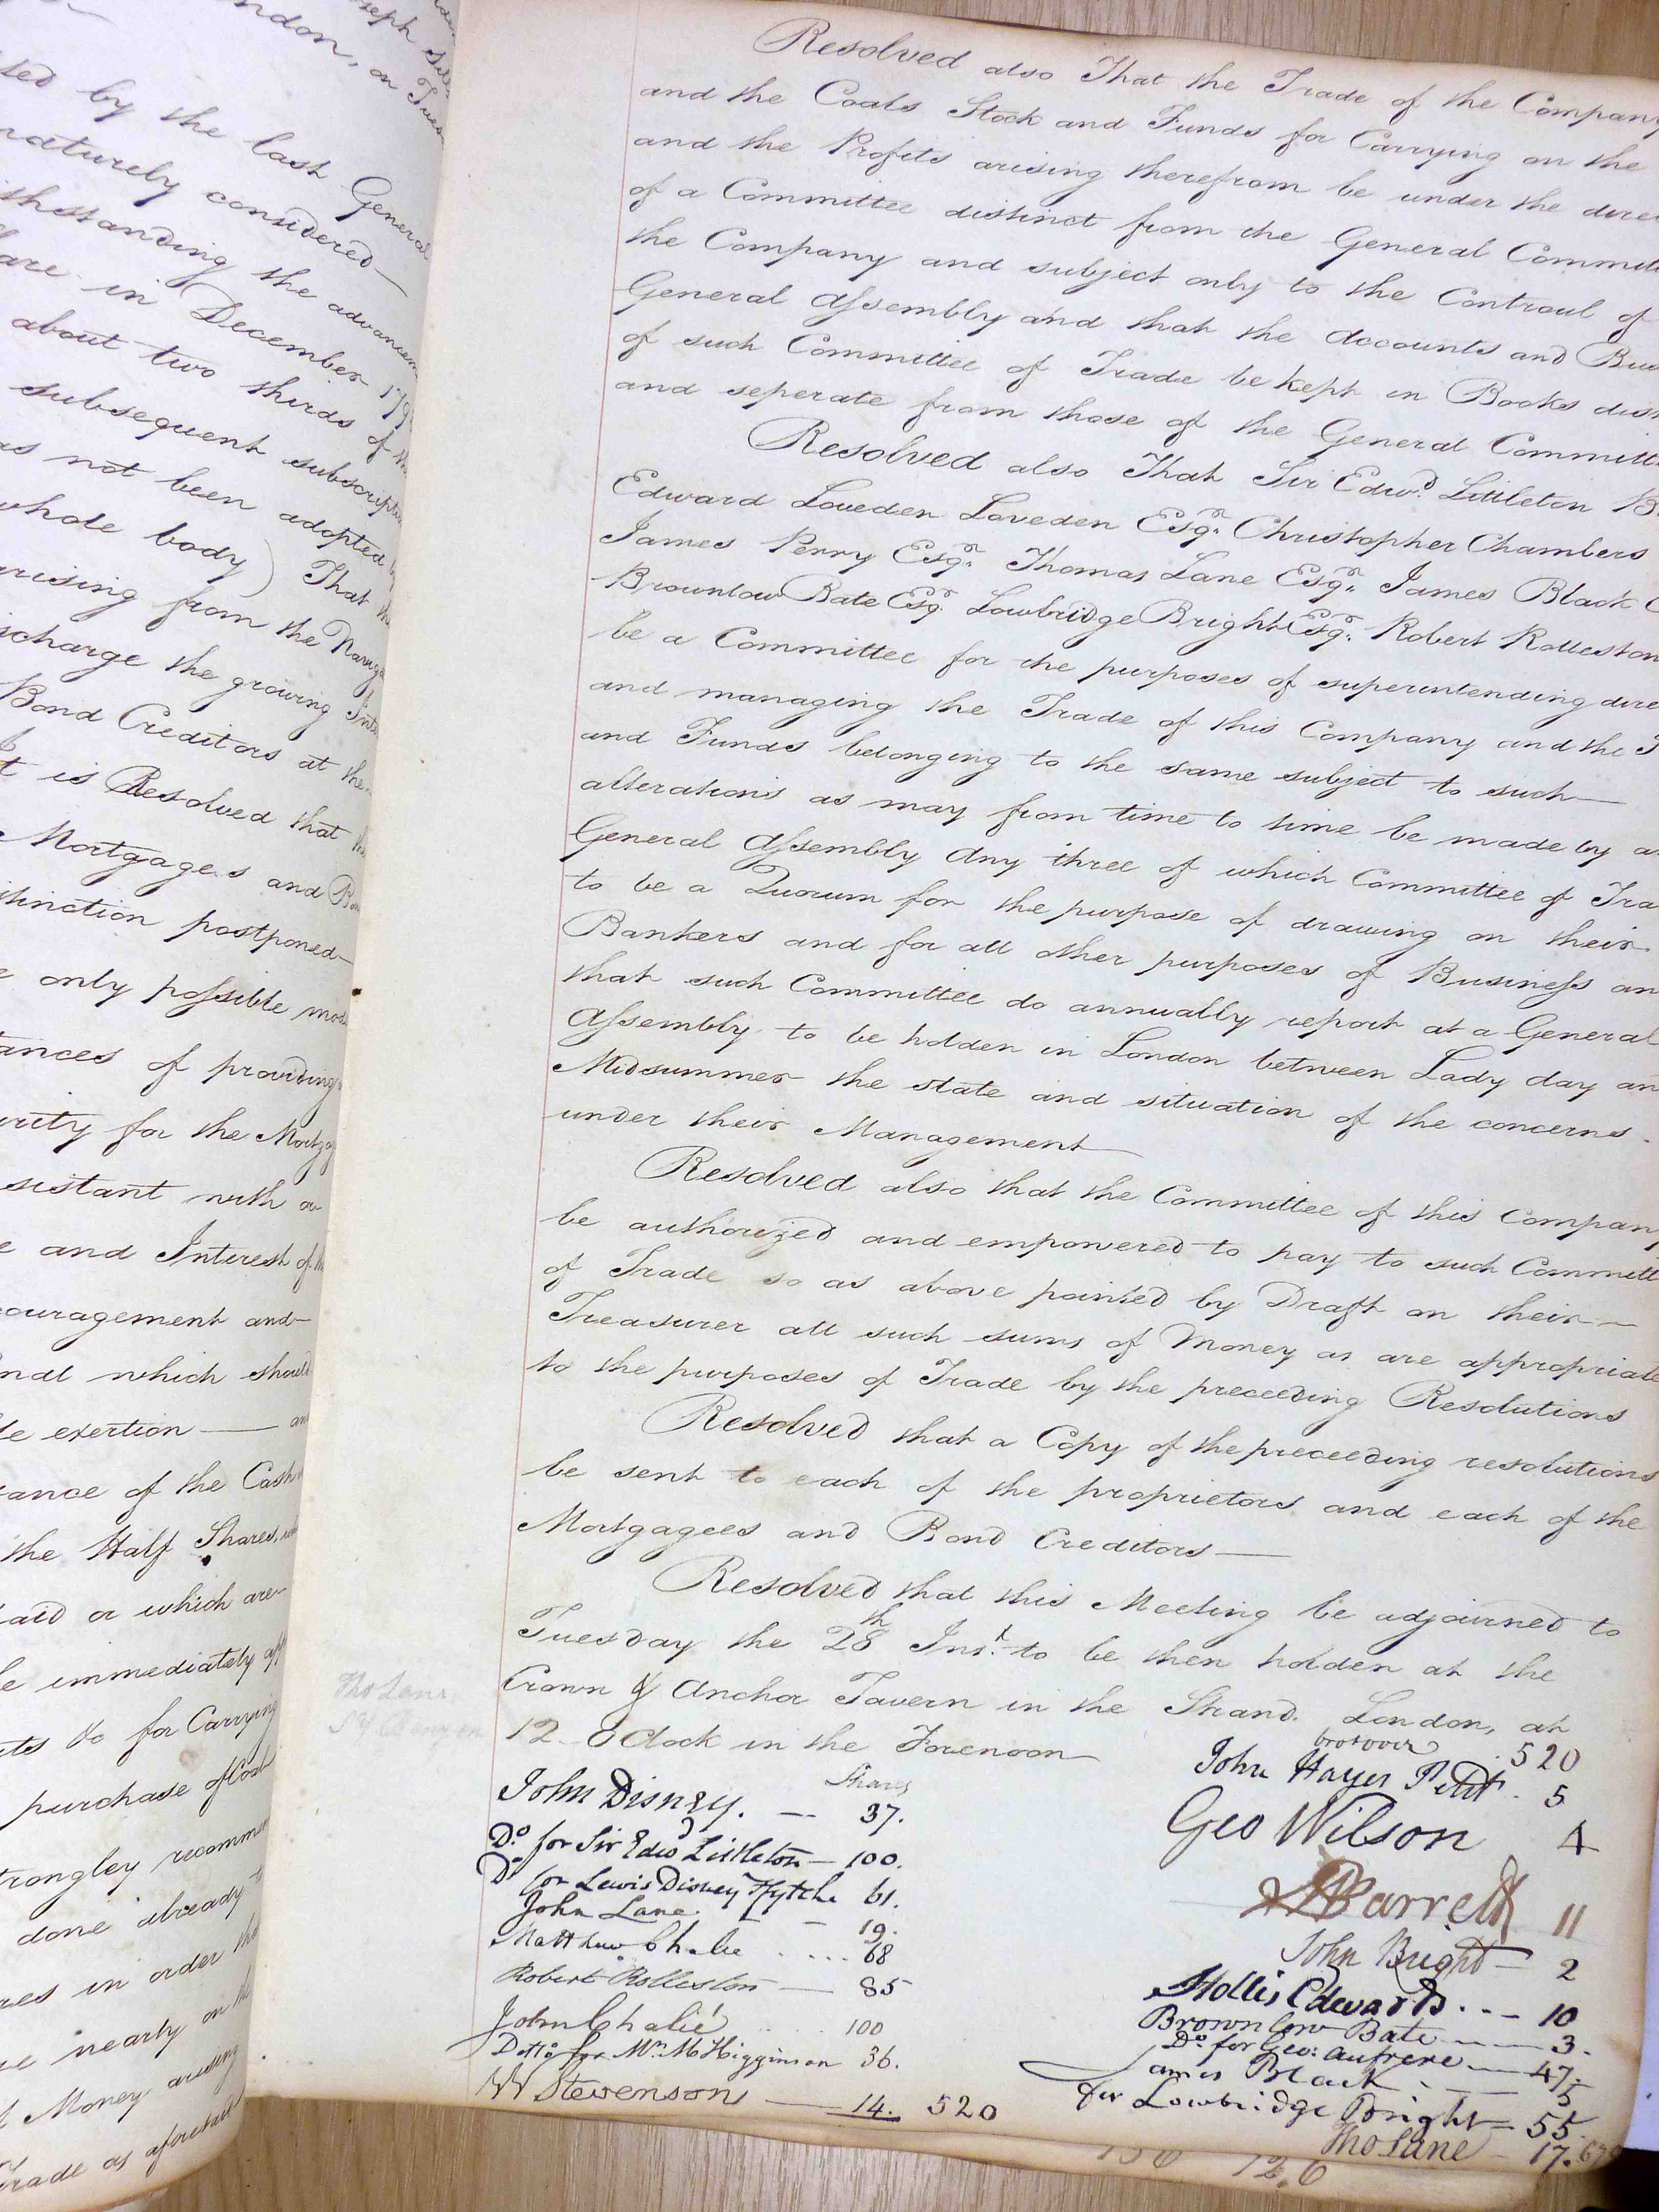 oseph
ondon, on Tues
sed by the last General
naturely considered
ithstanding the advancem
are in December 179
about two thirds of the
subsequent subscriptio
as not been adopted by
whole body) That the
arising from the Naviga
ischarge the growing Inte
Bond Creditors at the
t is Resolved that the
Mortgages and Bon
stinction postponed
e only possible mode
tances of providing
urity for the Mortga
sistant with a
e and Interest of th
couragement and
nal which should
le exertion — an
tance of the Cash
the Half Shares,
aid or which are
be immediately
ts &c for Carrying
purchase of Coal
trongley recomm
done already
res in order tha
ue nearly on the
f Money arising
Trade as aforesaid
Resolved also That the Trade of the Company
and the Coals Stock and Funds for Carrying on the
and the Profits arising therefrom be under the direc
of a Committee distinct from the General Committe
the Company and subject only to the Controul of
General Assembly and that the Accounts and Bus
of such Committee of Trade be kept in Books dist
and seperate from those of the General Committe
Resolved also That Sir Edwd. Littleton B
Edward Loveden Loveden Esqr. Christopher Chambers
James Perry Esqr. Thomas Lane Esqr. James Black
Brownlow Bate Esqr. Lowbridge Bright Esqr. Robert Rolleston
be a Committee for the purposes of superintending dire
and managing the Trade of this Company and the
and Funds belonging to the same subject to such
alterations as may from time to time be made by a
General Assembly Any three of which Committee of Tra
to be a Quorum for the purpose of drawing on their
Bankers and for all other purposes of Business an
that such Committee do annually report at a General
Assembly to be holden in London between Lady day an
Midsummer the state and situation of the concerns
under their Management
Resolved also that the Committee of this Company
be authorized and empowered to pay to such Committ
of Trade so as above pointed by Draft on their
Treasurer all such sums of Money as are appropriate
to the purposes of Trade by the preceeding Resolutions
Resolved that a Copy of the preceeding resolutions
be sent to each of the proprietors and each of the
Mortgagees and Bond Creditors
Resolved that this Meeting be adjourned to
Tuesday the 28th Inst. to be then holden at the
Crown & Anchor Tavern in the Strand London, at
12 O Clock in the Forenoon
Tho Lane
Shares
John Disney. — 37.
Do. for Sir Edwd Littleton — 100.
Do for Lewis Disney Ffytche 61.
John Lane. — 19.
Matthew Chalie .... 68
Robert Rolleston — 85
John Chalié 100
Ditto for Mr. M Higginson 36.
W Stevenson — 14. 520
brot over 520
John Hayes Petit. 5
Geo Wilson 4
Barrett 11
John Bright — 2
Hollis Edwards... 10
Brownlow Bate — 3.
Do. for Geo: Aufrere — 47.
James Black — 5
for Lowbridge Bright — 55.
Tho Lane — 17.